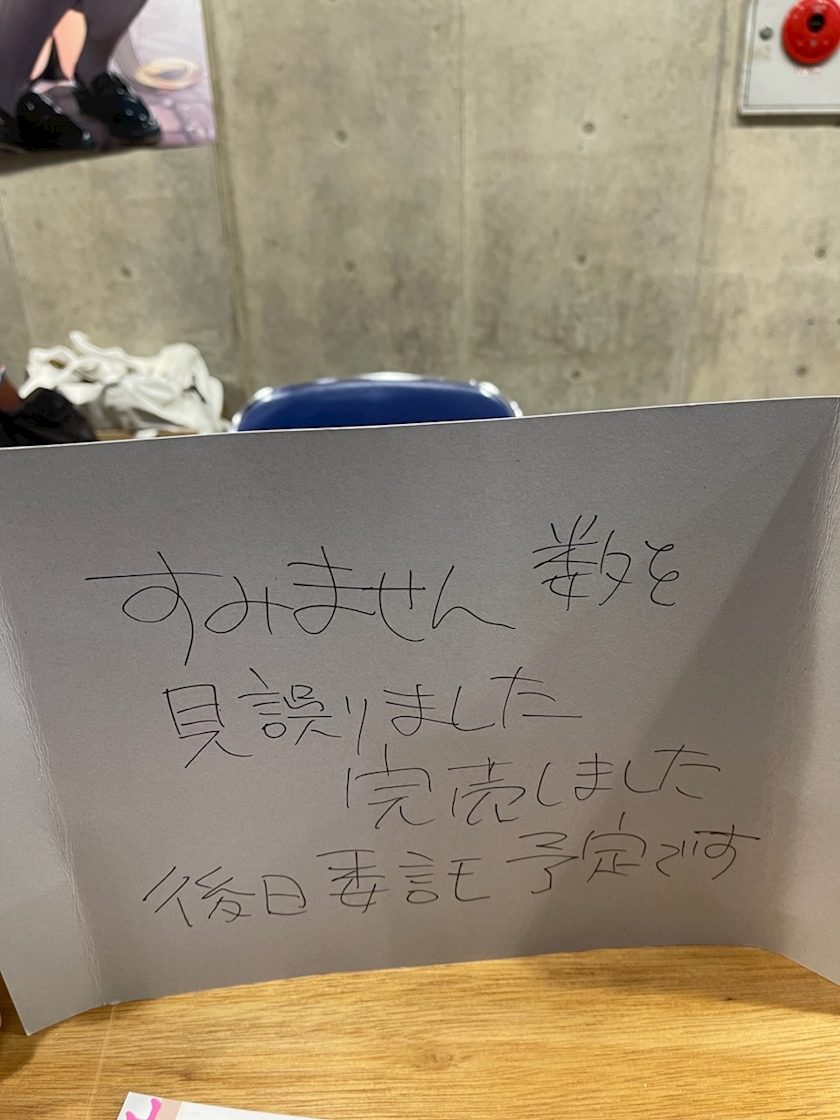 すみません 数を
見誤りました
完売しました
後日委託予定です